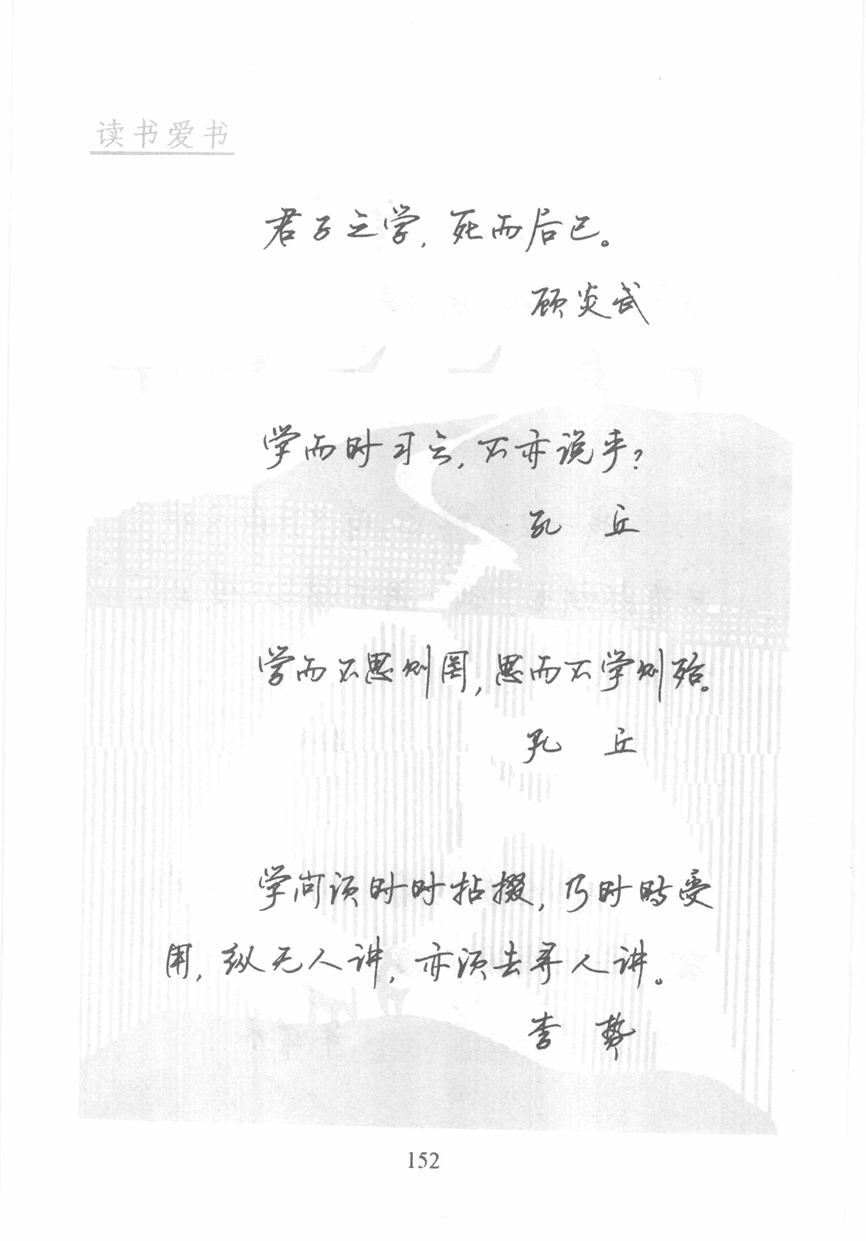 读书爱书
君子之学，死而后已。
顾炎武
学而时习之，不亦说乎？
孔 丘
学而不思则罔，思而不学则殆。
孔 丘
学问须时时拈掇，乃时时受
用，纵无人讲，亦须去寻人讲。
李 贽
152